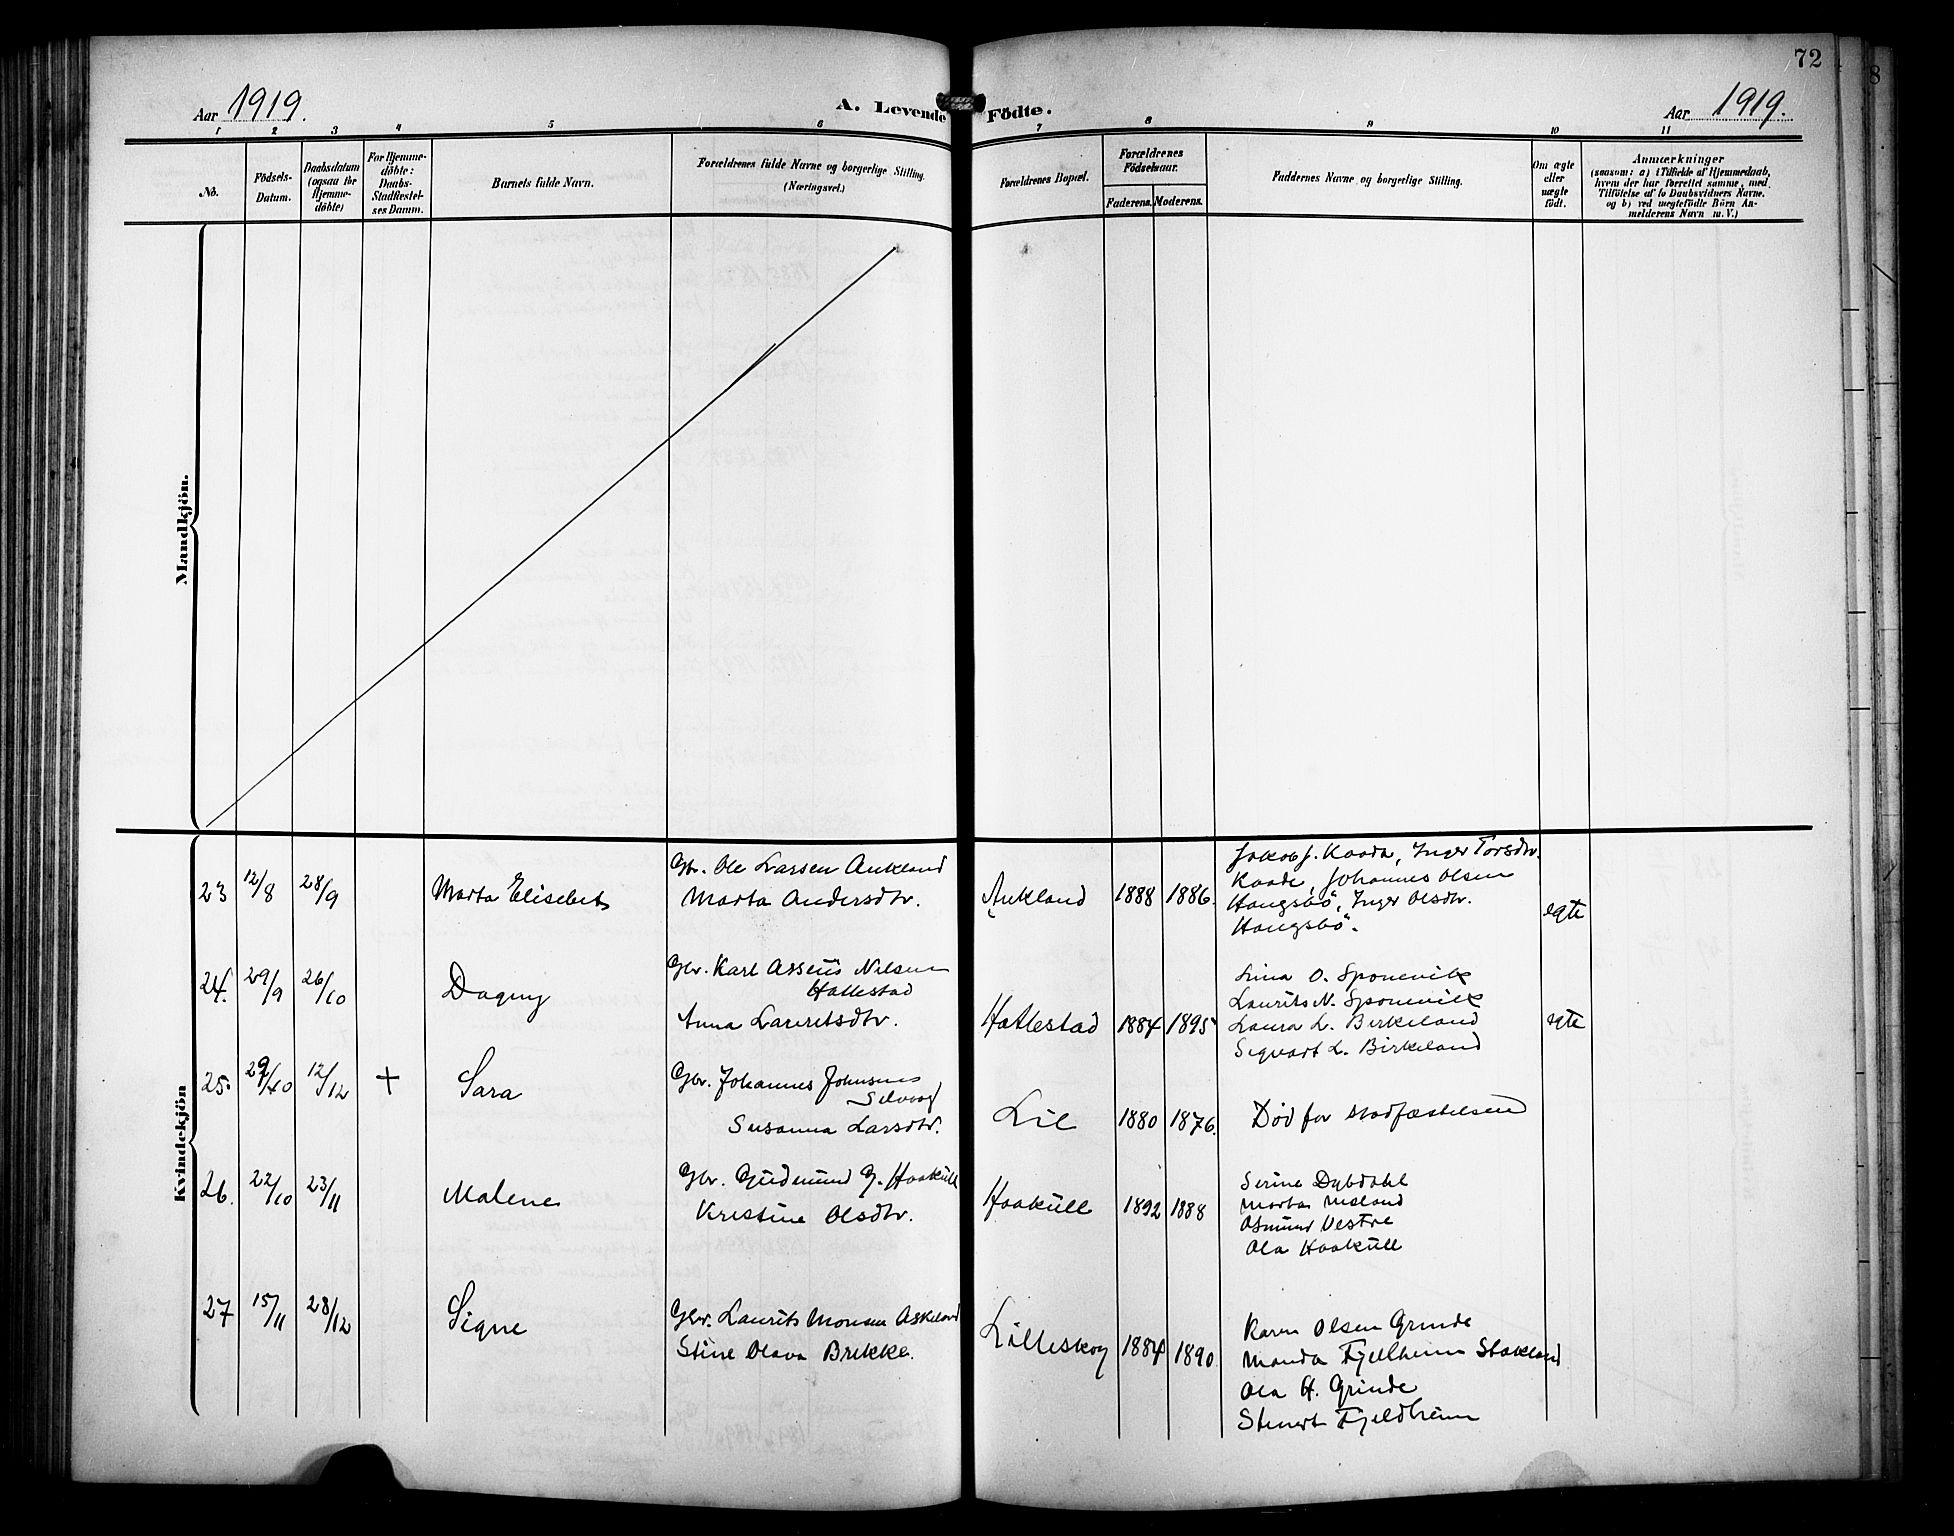 72
8
Aar 1919.
A. Levende Födte.
Aar 1919.
1 2 3 4 5 6 7 8 9 10 11
No.
Födsels-
Datum.
Daabsdatum
(ogsaa for
Hjemme-
döbte)
For Hjemme-
döbte:
Daabs-
Stadfæstel-
ses Datum.
Barnets fulde Navn.
Forældrenes fulde Navne og borgerlige Stilling.
(Næringsvei.)
Forældrenes Bopæl.
Forældrenes
Födselsaar.
Faderens. Moderens.
Faddernes Navne og borgerlige Stilling.
Om ægte
eller
uægte
födt.
Anmærkninger
(saasom: a) i Tilfælde af Hjemmedaab,
hvem der har forrettet samme, med
Tilföielse af to Daabsvidners Navne.
og b) ved uægtefödte Börn An-
melderens Navn m. V.)
Mandkjön.
Kvindekjön
23 12/8 28/9 Marta Elisebet
Gbr. Ole Larsen Aukland
Marta Andersdtr.
Aukland 1888 1886.
Jakob J. Kaada, Inger Torsdtr.
Kaade, Johannes Olsen
Haugsbö, Inger Olsdtr.
Haugsbö.
egte
24. 29/9 26/10 Dagny
Gbr. Karl Asseus Nilsen
Hallestad
Anna Lauritsdtr.
Hatlestad 1884 1895
Lina O. Sponevik
Laurits N. Sponevik
Laura L. Birkeland
Sigvart L. Birkeland
egte
25. 29/10 12/12 + Sara
Gbr. Johannes Johnsen
Selvaag
Susanna Larsdtr.
Lil 1880 1876.
Död før stadfæstelsen
26. 22/10 23/11 Malene
Gbr. Gudmund G. Haakull
Kristine Olsdtr.
Haakull 1892 1888
Serine Dybdahl
Marta Meland
Osmund Vestre
Ola Haakull
27 15/11 28/12 Signe
Gbr. Laurits Monsen Askeland
Stine Olava Brekke.
Lilleskog 1884 1890
Karen Olsen Grinde
Manda Fjellheim Stakland
Ola H. Grinde
Fjeldheim